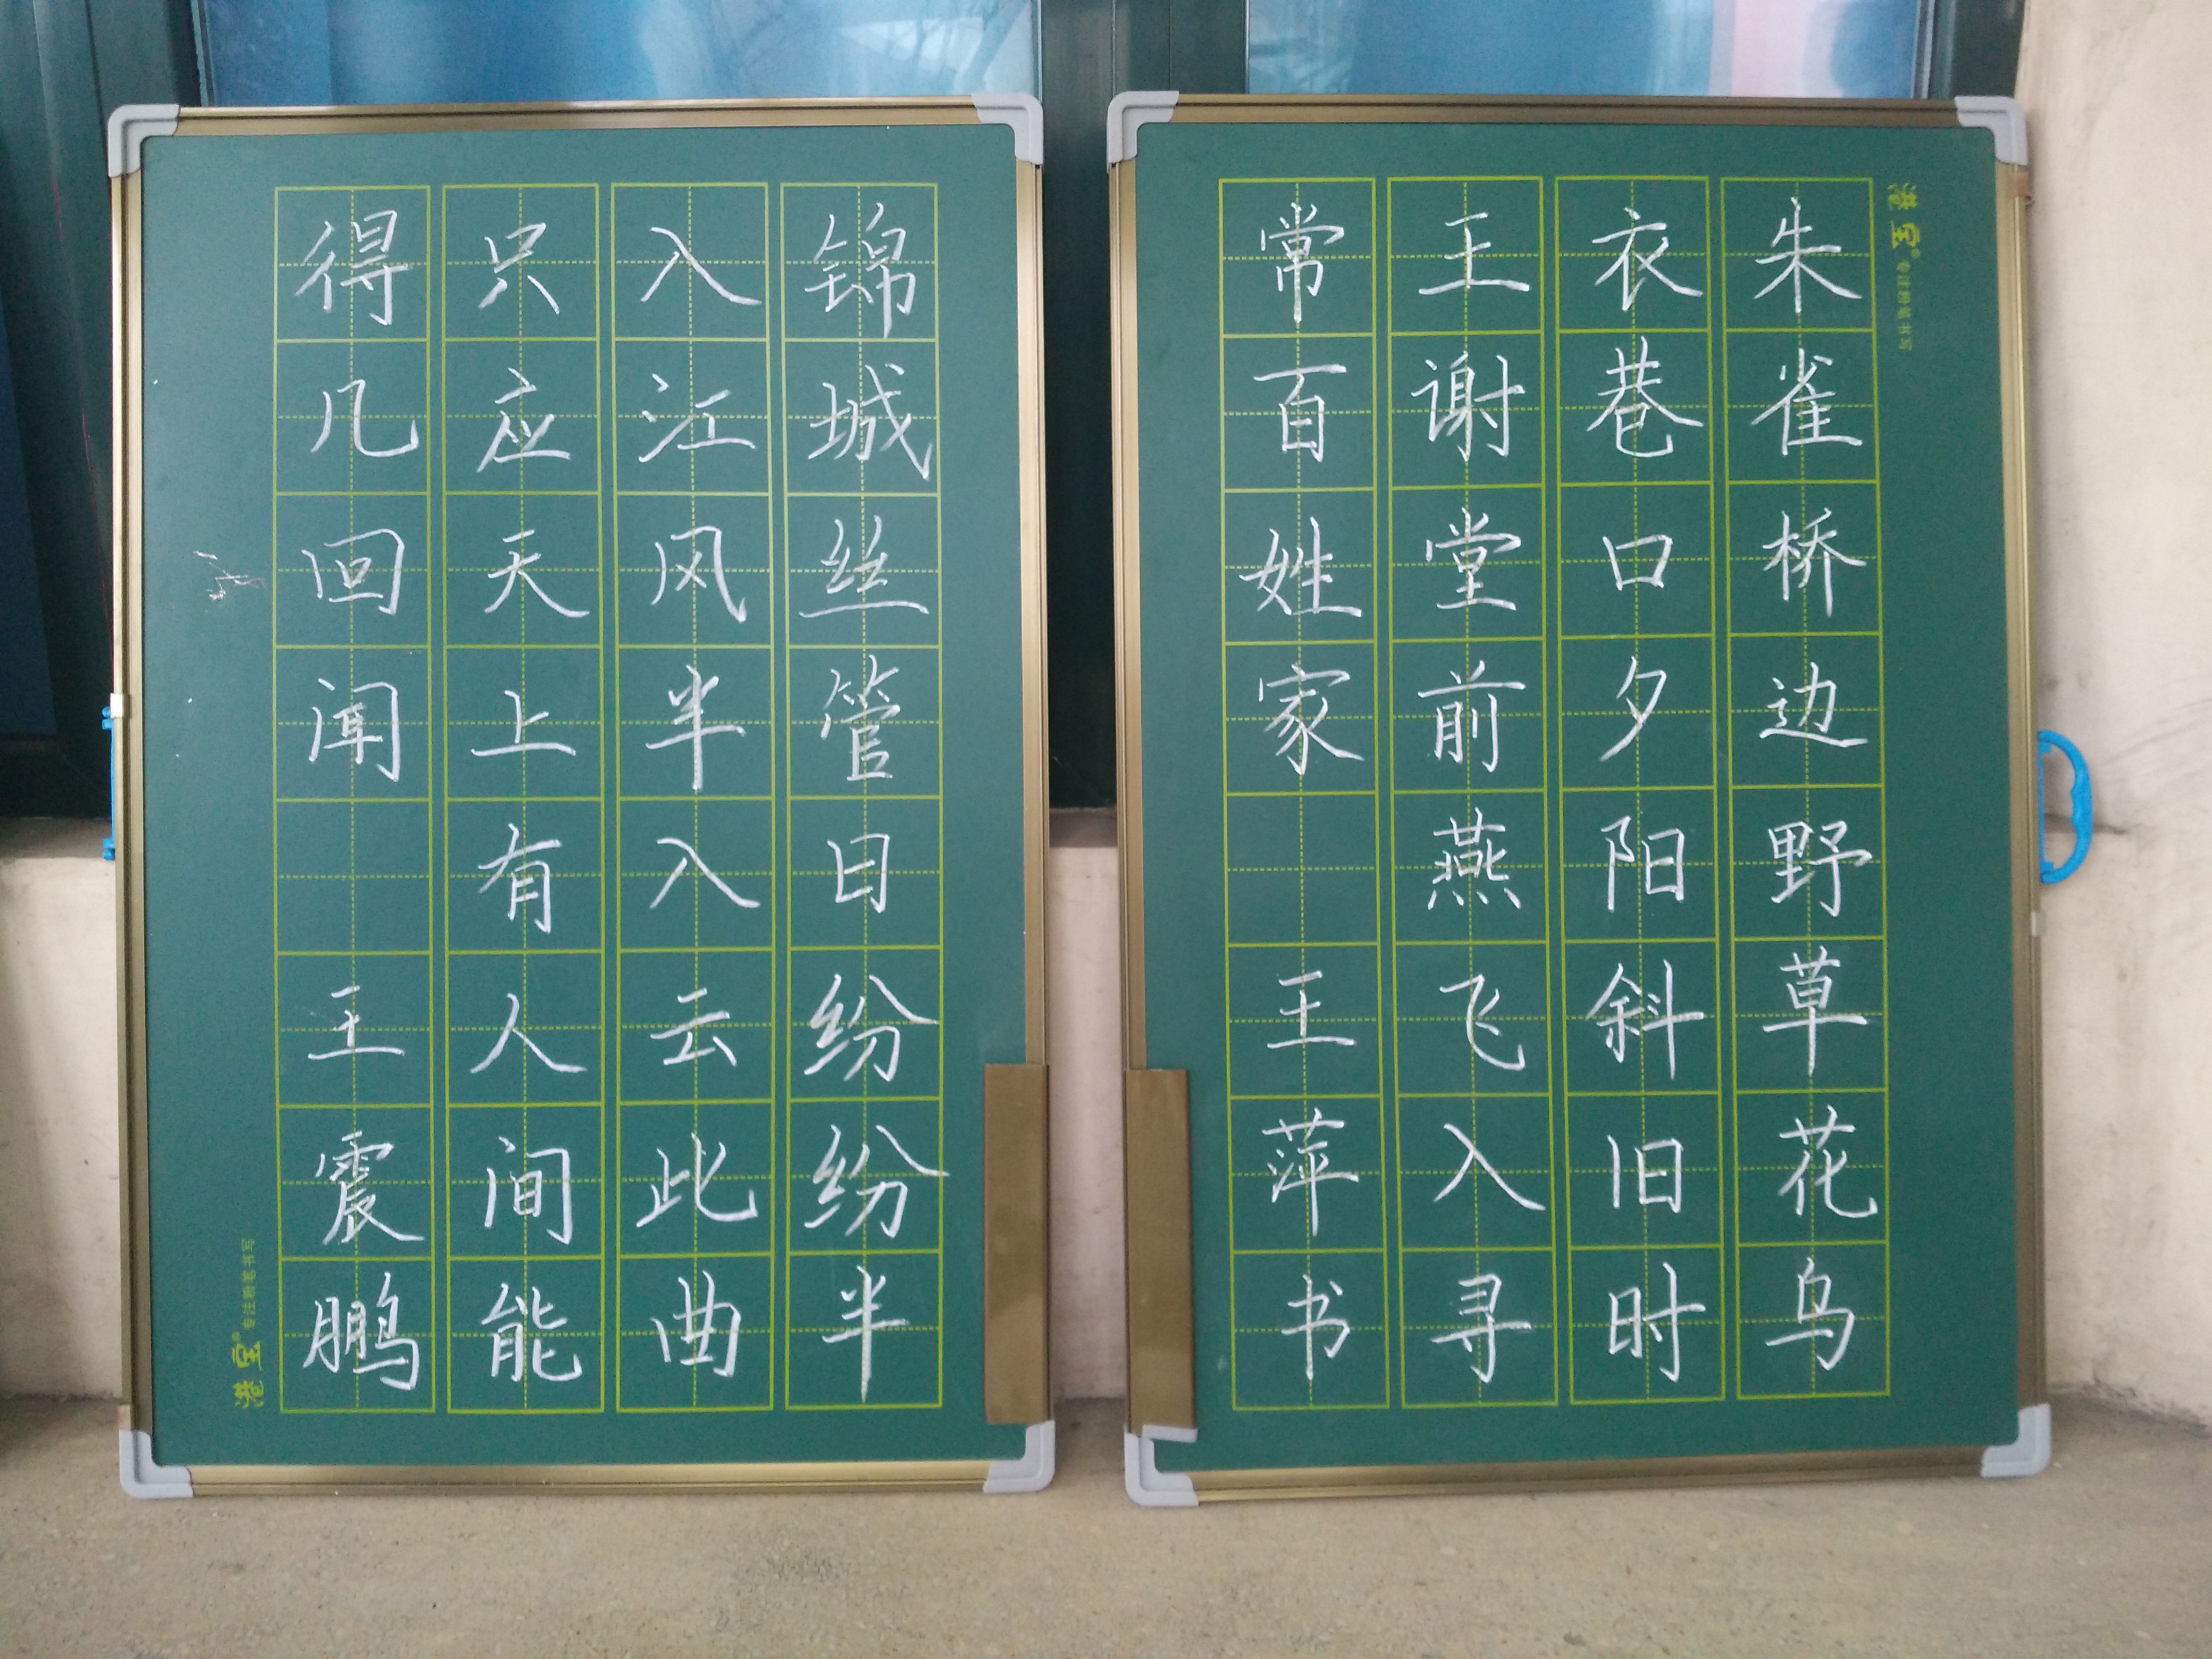 朱雀桥边野草花乌
衣巷口夕阳斜旧时
王谢堂前燕飞入寻
常百姓家 王萍书
专注粉笔书写
锦城丝管日纷纷半
入江风半入云此曲
只应天上有人间能
得几回闻 王震鹏
专注粉笔书写